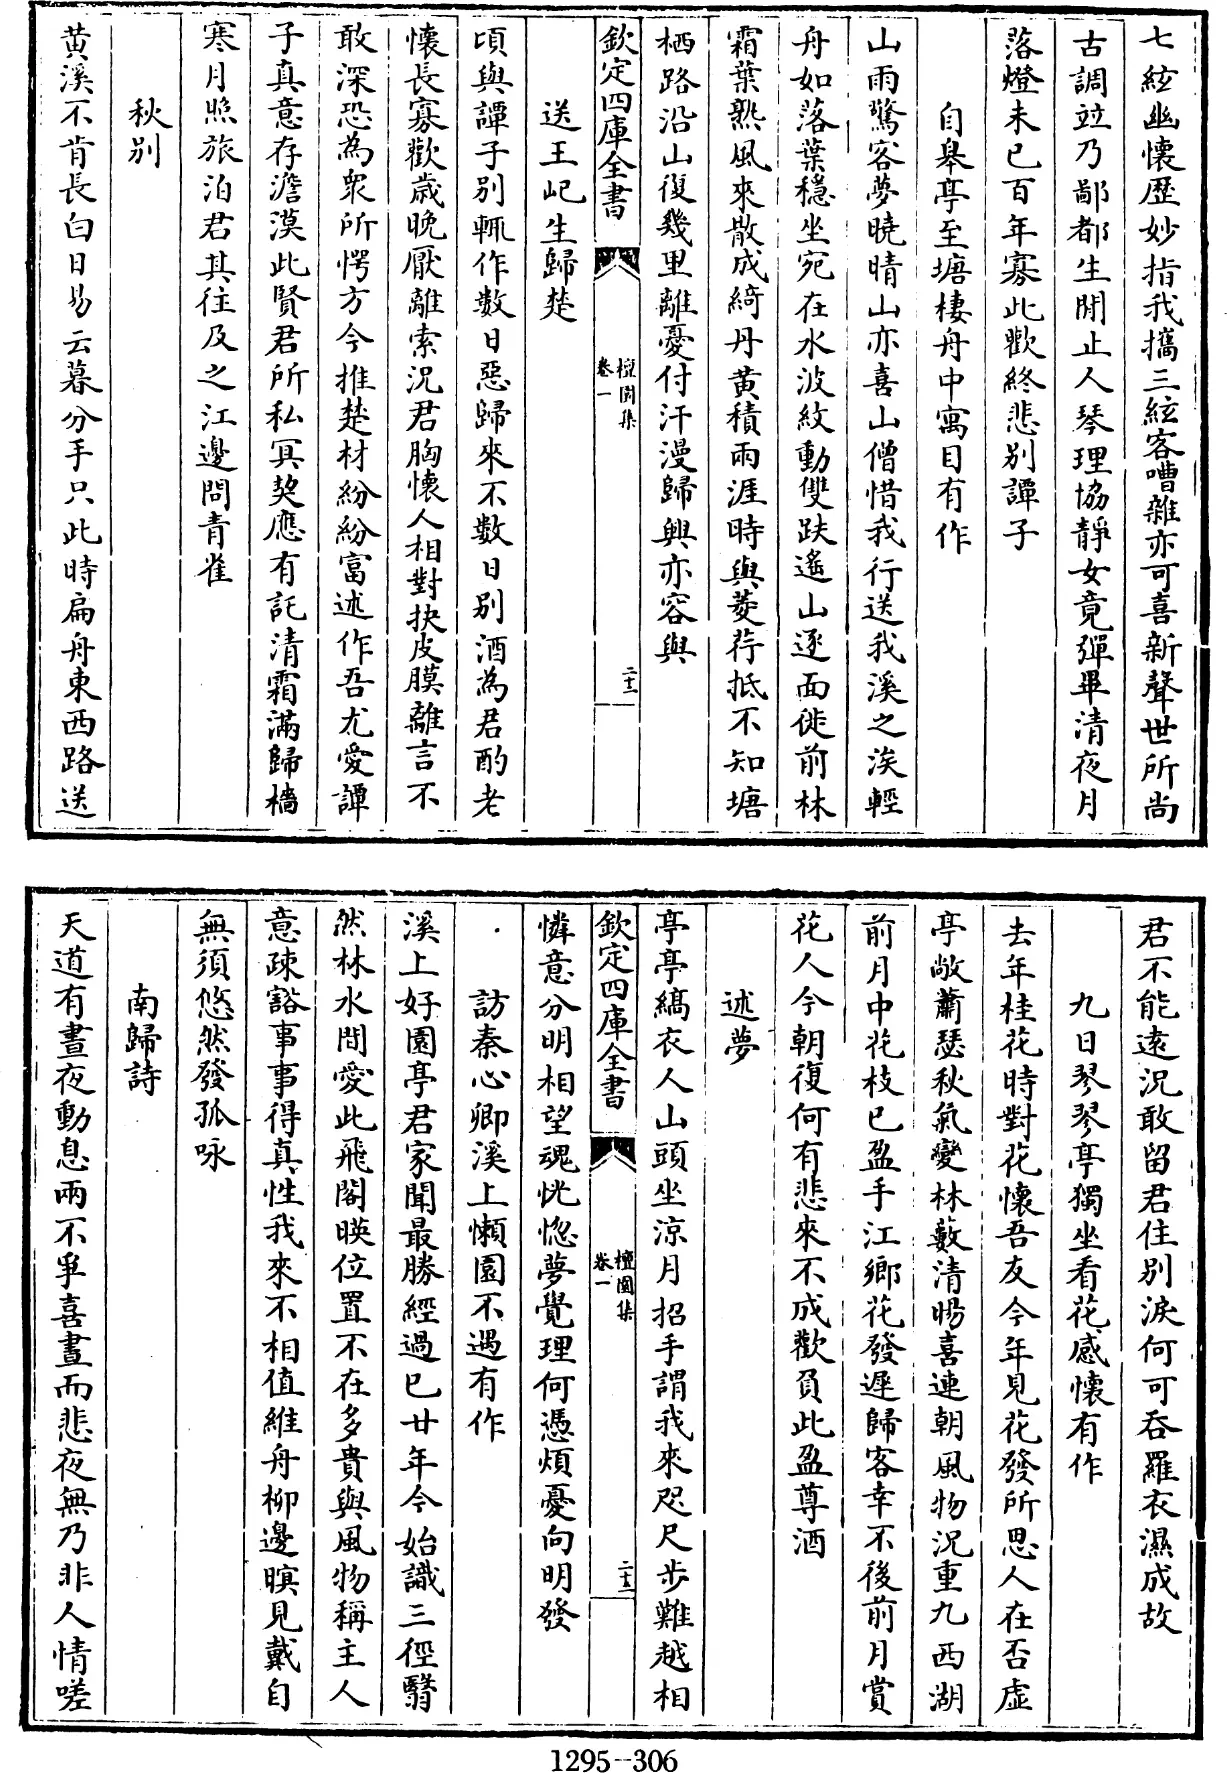 七絃幽懷歷妙指我攜三絃客嘈雜亦可喜新聲世所尚
古調竝乃鄙都生閒止人琴理協靜女竟彈畢清夜月
落燈未已百年寡此歡終悲別譚子
自皋亭至塘棲舟中寓目有作
山雨驚客夢曉晴山亦喜山僧惜我行送我溪之涘輕
舟如落葉穩坐宛在水波紋動雙趺遙山逐面徙前林
霜葉熟風來散成綺丹黃積兩涯時與菱荇抵不知塘
栖路沿山復幾里離憂付汗漫歸興亦容與
欽定四庫全書
檀園集
卷一
二十二
送王屺生歸楚
頃與譚子別輒作數日惡歸來不數日別酒為君酌老
懷長寡歡歲晚厭離索況君胸懷人相對抉皮膜離言不
敢深恐為眾所愕方今推楚材紛紛富述作吾尤愛譚
子真意存澹漠此賢君所私冥契應有託清霜滿歸檣
寒月照旅泊君其往及之江邊問青雀
秋別
黃溪不肯長白日易云暮分手只此時扁舟東西路送
君不能遠況敢留君住別淚何可吞羅衣濕成故
九日琴琴亭獨坐看花感懷有作
去年桂花時對花懷吾友今年見花發所思人在否虛
亭敞蕭瑟秋氣變林藪清暘喜連朝風物況重九西湖
前月中花枝已盈手江鄉花發遲歸客幸不後前月賞
花人今朝復何有悲來不成歡負此盈尊酒
述夢
亭亭縞衣人山頭坐涼月招手謂我來咫尺步難越相
欽定四庫全書
檀園集
卷一
二十三
憐意分明相望魂恍惚夢覺理何憑煩憂向明發
訪秦心卿溪上懶園不遇有作
溪上好園亭君家聞最勝經過已廿年今始識三徑翳
然林水間愛此飛閣暎位置不在多貴與風物稱主人
意疎豁事事得真性我來不相值維舟柳邊暝見戴自
無須悠然發孤咏
南歸詩
天道有晝夜動息兩不爭喜晝而悲夜無乃非人情嗟
1295--306